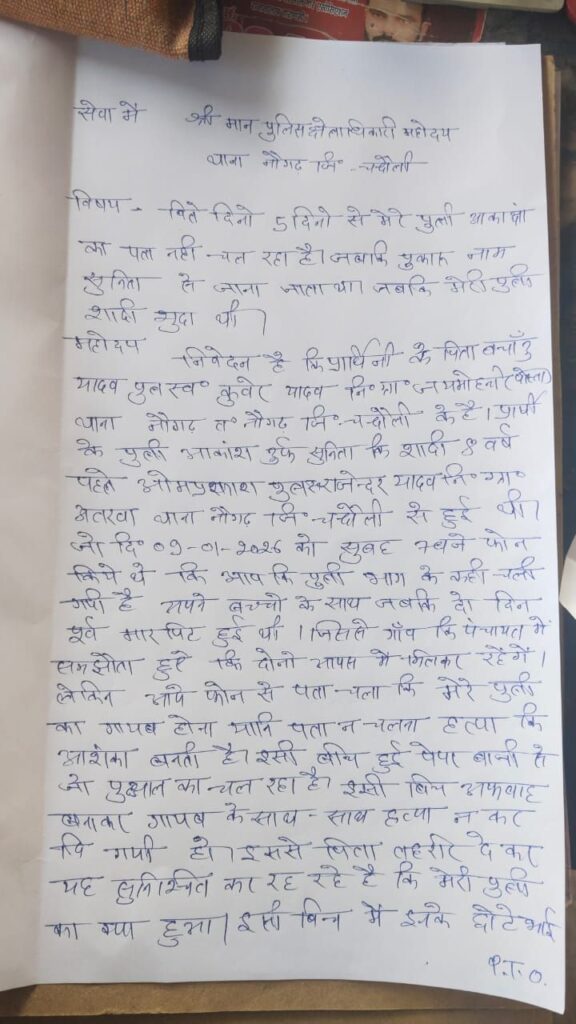 सेवा में श्री मान पुलिस क्षेत्राधिकारी महोदय
थाना नौगढ़ जि॰ - चन्दौली
विषय - बिते दिनो 5 दिनो से मेरे पुत्री आकांक्षा
का पता नही चल रहा है। जबकि पुकारू नाम
सुनिता से जाना जाता था। जबकि मेरी पुत्री
शादी सुदा थी।
महोदय
निवेदन है कि प्रार्थिनी के पिता
यादव पुत्र स्व॰ कुवेर यादव नि॰ ग्रा॰ जयमोहनी
थाना नौगढ़ त॰ नौगढ़ जि॰ - चन्दौली के है। प्रार्थी
के पुत्री आकांक्षा उर्फ सुनिता कि शादी 8 वर्ष
पहले ओमप्रकाश पुत्र राजेन्दर यादव नि॰ ग्रा॰
अतरवा थाना नौगढ जि॰ - चन्दौली से हुई थी।
जो दि॰ 09-01-2026 को सुबह 7 बजे फोन
किये थे कि आप कि पुत्री भाग के कही चली
गयी है अपने बच्चो के साथ जबकि दो दिन
पूर्व मार पिट हुई थी। जिसले गाँव कि पंचायत में
समझौता हुई कि दोनो आपस मे मिलकर रहेगें।
लेकिन आये फोन से पता चला कि मेरे पुत्री
का गायब होना यानि पता न चलना हत्या कि
आशंका बनती है। इसी बीच हुई
जो का चल रहा है। इसी बिच अफवाह
बनाकर गायब के साथ - साथ हत्या न कर
दि गयी हो। इससे पिता तहरीर दे कर
यह सुनिश्चित कर रहे है कि मेरी पुत्री
का क्या हुआ। इसी बिच मे इनके छोटे भाई
P.T.O.